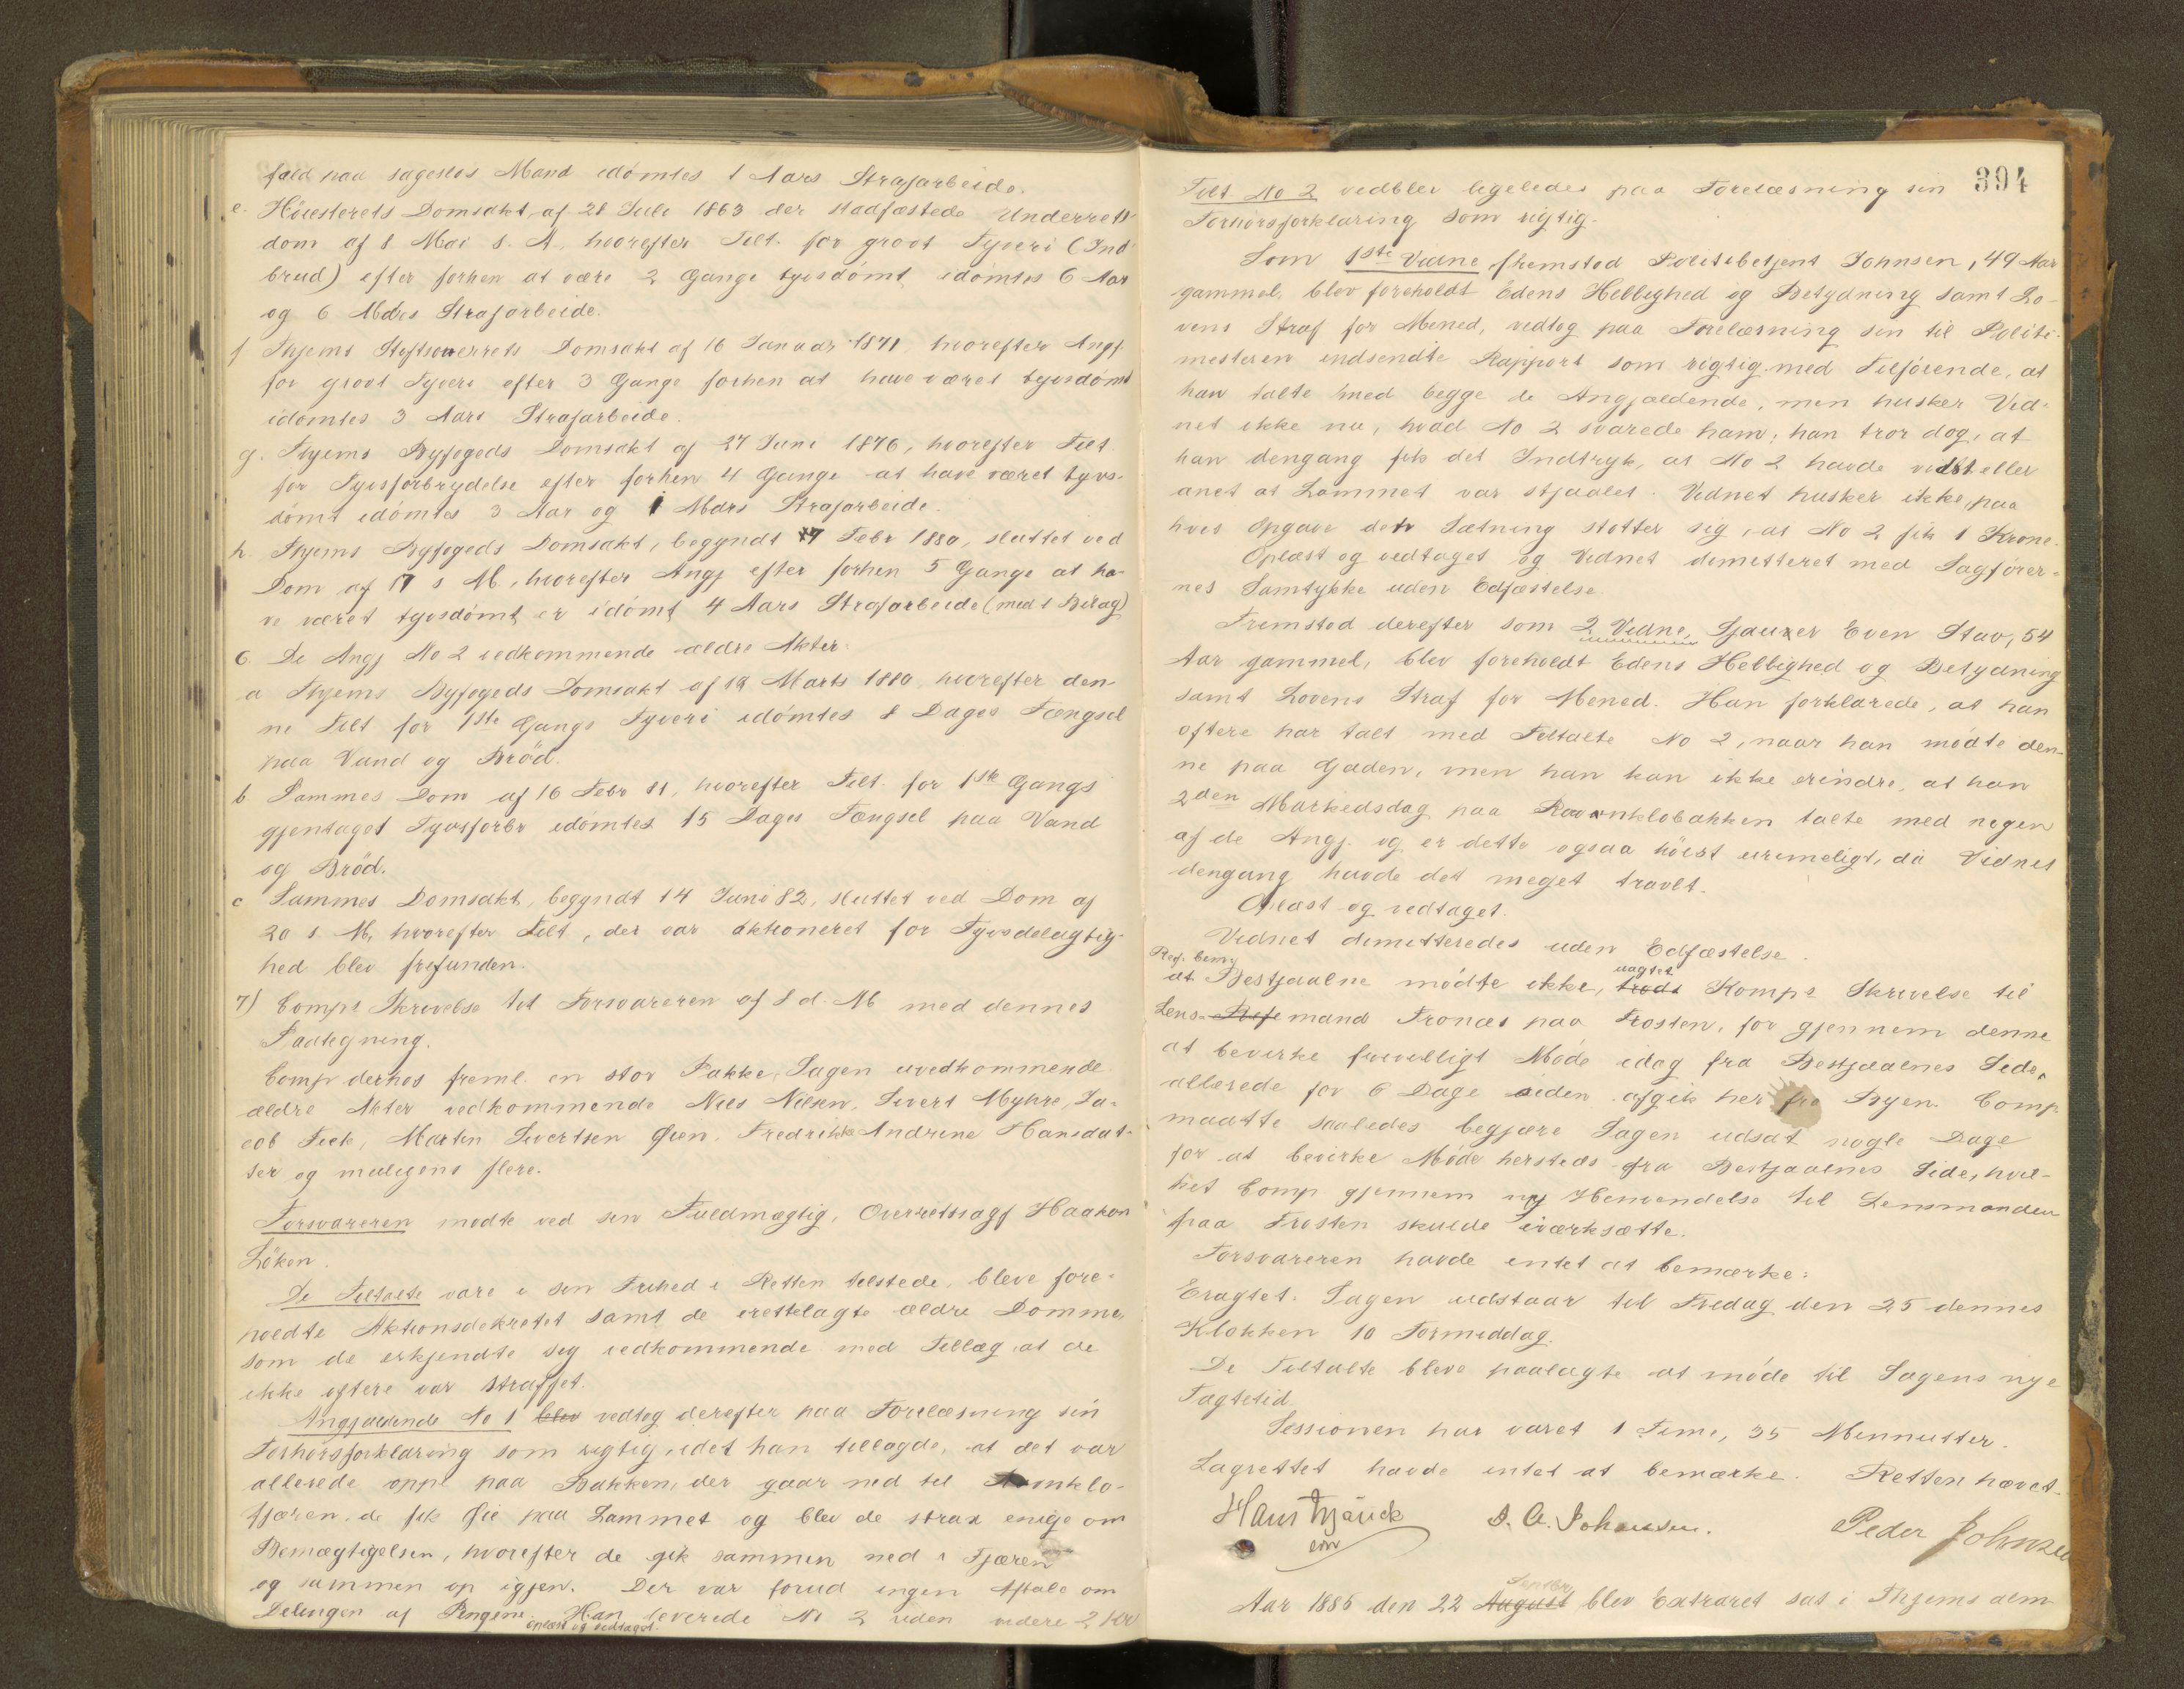 fald paa sagesløs Mand idømtes 1 Aars Strafarbeide.
e. Höiesterets Domsakt af 28 Juli 1863 der stadfæstede Underrets
dom af 8 Mai s. A. hvorefter Tilt. for grovt Tyveri (Ind
brud) efter forhen at være 2 Gange tyvsdömt idömtes 6 Aar
og 6 Mdrs Strafarbeide.
f Thjems Stiftsoverrets Domsakt af 16 Januar 1871, hvorefter Angj.
for grovt Tyveri efter 3 Gange forhen at have været tyvsdömt
idömtes 3 Aars Strafarbeide.
g. Thjems Byfogeds Domsakt af 27 Juni 1876, hvorefter Tilt.
for Tyvsforbrydelse efter forhen 4 Gange at have været tyvs-
dömt idömtes 3 Aar og 1 Mdrs Strafarbeide.
h. Thjems Byfogeds Domsakt, begyndt 7 Febr 1880, sluttet ved
Dom af 17 s. M., hvorefter Angj efter forhen 5 Gange at ha-
ve været tyvsdömt er idömt 4 Aars Strafarbeide (med 1 Bilag)
6. De Angj No 2 vedkommende ældre Akter:
a Thjems Byfogeds Domsakt af 19 Marts 1880, hvorefter den-
ne Tilt for 1ste Gangs Tyveri idömtes 8 Dages Fængsel
paa Vand og Bröd.
b Sammes Dom af 16 Febr 81, hvorefter Tilt. for 1ste Gangs
gjentaget Tyvsforbr idömtes 15 Dages Fængsel paa Vand
og Bröd.
c Sammes Domsakt, begyndt 14 Juni 82, sluttet ved Dom af
20 s. M, hvorefter Tilt, der var aktioneret for Tyvsdelagtig-
hed blev frifunden.
7) Comps Skrivelse til Forsvareren af 8 d. M med dennes
Paategning.
Comp derhos freml. en stor Pakke, Sagen uvedkommende
ældre Akter vedkommende Nils Nilsen, Sivert Myhre, Ja-
cob Feek, Martin Sivertsen Øien, Fredrikke Andrine Hansdat-
ter og muligens flere.
Forsvareren mødte ved sin Fuldmægtig, Overretssagf Haakon
Löken.
De Tiltalte vare i sin Frihed i Retten tilstede, bleve fore-
holdte Aktionsdekretet samt de irettelagte ældre Domme,
som de erkjendte sig vedkommende med Tillæg, at de
ikke oftere var straffet.
Angjældende No 1 blev vedtog derefter paa Forelæsning sin
Forhörsforklaring som rigtig, idet han tillagde, at det var
allerede oppe paa Bakken, der gaar ned til Ravnklo-
fjæren, de fik Øie paa Lammet og blev de strax enige om
Bemægtigelsen, hvorefter de gik sammen ned i Fjæren
og sammen op igjen. Der var forud ingen Aftale om
Delingen af Pengene. Han leverede No 2 uden videre 2 Kr
oplæst og vedtaget.
394
Tilt No 2 vedblev ligeledes paa Forelæsning sin
Forhörsforklaring som rigtig.
Som 1ste Vidne fremstod Politibetjent Johnsen, 49 Aar
gammel, blev foreholdt Edens Hellighed og Betydning samt Lo-
vens Straf for Mened, vedtog paa Forelæsning sin til Politi-
mesteren indsendte Rapport som rigtig med Tilföiende, at
han talte med begge de Angjældende, men husker Vid-
net ikke nu, hvad No 2 svarede ham, han tror dog, at
han dengang fik det Indtryk, at No 2 havde vidst eller
anet at Lammet var stjaalet. Vidnet husker ikke, paa
hvis Opgave den Sætning støtter sig, at No 2 fik 1 Krone.
Oplæst og vedtaget og Vidnet dimitteret med Sagförer-
nes Samtykke uden Edfæstelse.
Fremstod derefter som 2 Vidne, Sjauer Even Stav, 54
Aar gammel, blev foreholdt Edens Hellighed og Betydning
samt Lovens Straf for Mened. Han forklarede, at han
oftere har talt med Tiltalte No 2, naar han mødte den-
ne paa Gaden, men han kan ikke erindre, at han
2den Markedsdag paa Ravnklobakken talte med nogen
af de Angj. og er dette ogsaa höist urimeligt, da Vidnet
dengang havde det meget travlt.
Oplæst og vedtaget.
Vidnet dimitteredes uden Edfæstelse.
Ref. bem.
at Bestjaalne mødte ikke, trods uagtet Komps Skrivelse til
Lens-mand Fronæs paa Frosten, for gjennem denne
at bevirke frivilligt Møde idag fra Bestjaalnes Side,
allerede for 6 Dage siden afgik her fra Byen. Comp.
maatte saaledes begjære Sagen udsat nogle Dage
for at bevirke Møde hersteds fra Bestjaalnes Side, hvil-
ket Comp gjennem ny Henvendelse til Lensmanden
paa Frosten skulde iværksætte.
Forsvareren havde intet at bemærke.
Eragtet. Sagen udstaar til Fredag den 25 dennes
Klokken 10 Formiddag.
De Tiltalte bleve paalagte at møde til Sagens nye
Tægtetid.
Sessionen har varet 1 Time, 35 Minnutter.
Lagrettet havde intet at bemærke. Retten hævet.
Hans J. A. Johansen. Peder Johnsen
Septbr
Aar 1885 den 22 August blev Extraret sat i Thjems alm